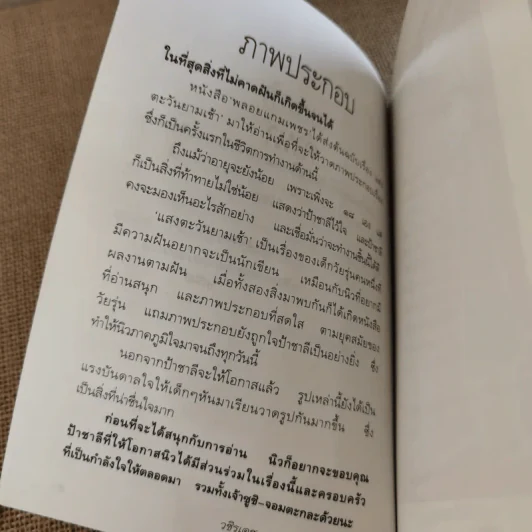 ภาพประกอบ
ในที่สุดสิ่งที่ไม่คาดฝันก็เกิดขึ้นจนได้
หนังสือ 'พลอยแกมเพชร' ได้ส่งต้นฉบับเรื่อง
ตะวันยามเช้า' มาให้อ่านเพื่อที่จะให้วาดภาพประกอบเรื่อง
ซึ่งก็เป็นครั้งแรกในชีวิตการทำงานด้านนี้
ถึงแม้ว่าอายุจะยังน้อย เพราะเพิ่งจะ ๑๘
ก็เป็นสิ่งที่ท้าทายไม่ใช่น้อย แสดงว่าป้าชาลีไว้ใจ และป้าชาลี
คงจะมองเห็นอะไรสักอย่าง และเชื่อมั่นว่าจะทำงานชิ้นนี้ได้ดี
'แสงตะวันยามเช้า' เป็นเรื่องของเด็กวัยรุ่นคนหนึ่งที่
มีความฝันอยากจะเป็นนักเขียน เหมือนกับนิวที่อยากมี
ผลงานตามฝัน เมื่อทั้งสองสิ่งมาพบกันก็ได้เกิดหนังสือ
ที่อ่านสนุก และภาพประกอบที่สดใส ตามยุคสมัยของ
วัยรุ่น แถมภาพประกอบยังถูกใจป้าชาลีเป็นอย่างยิ่ง ซึ่ง
ทำให้นิวภาคภูมิใจมาจนถึงทุกวันนี้
นอกจากป้าชาลีจะให้โอกาสแล้ว รูปเหล่านี้ยังได้เป็น
แรงบันดาลใจให้เด็กๆหันมาเรียนวาดรูปกันมากขึ้น ซึ่ง
เป็นสิ่งที่น่าชื่นใจมาก
ก่อนที่จะได้สนุกกับการอ่าน นิวก็อยากจะขอบคุณ
ป้าชาลีที่ให้โอกาสนิวได้มีส่วนร่วมในเรื่องนี้และครอบครัว
ที่เป็นกำลังใจให้ตลอดมา รวมทั้งเจ้าซูชิ-จอมตะกละด้วยนะ